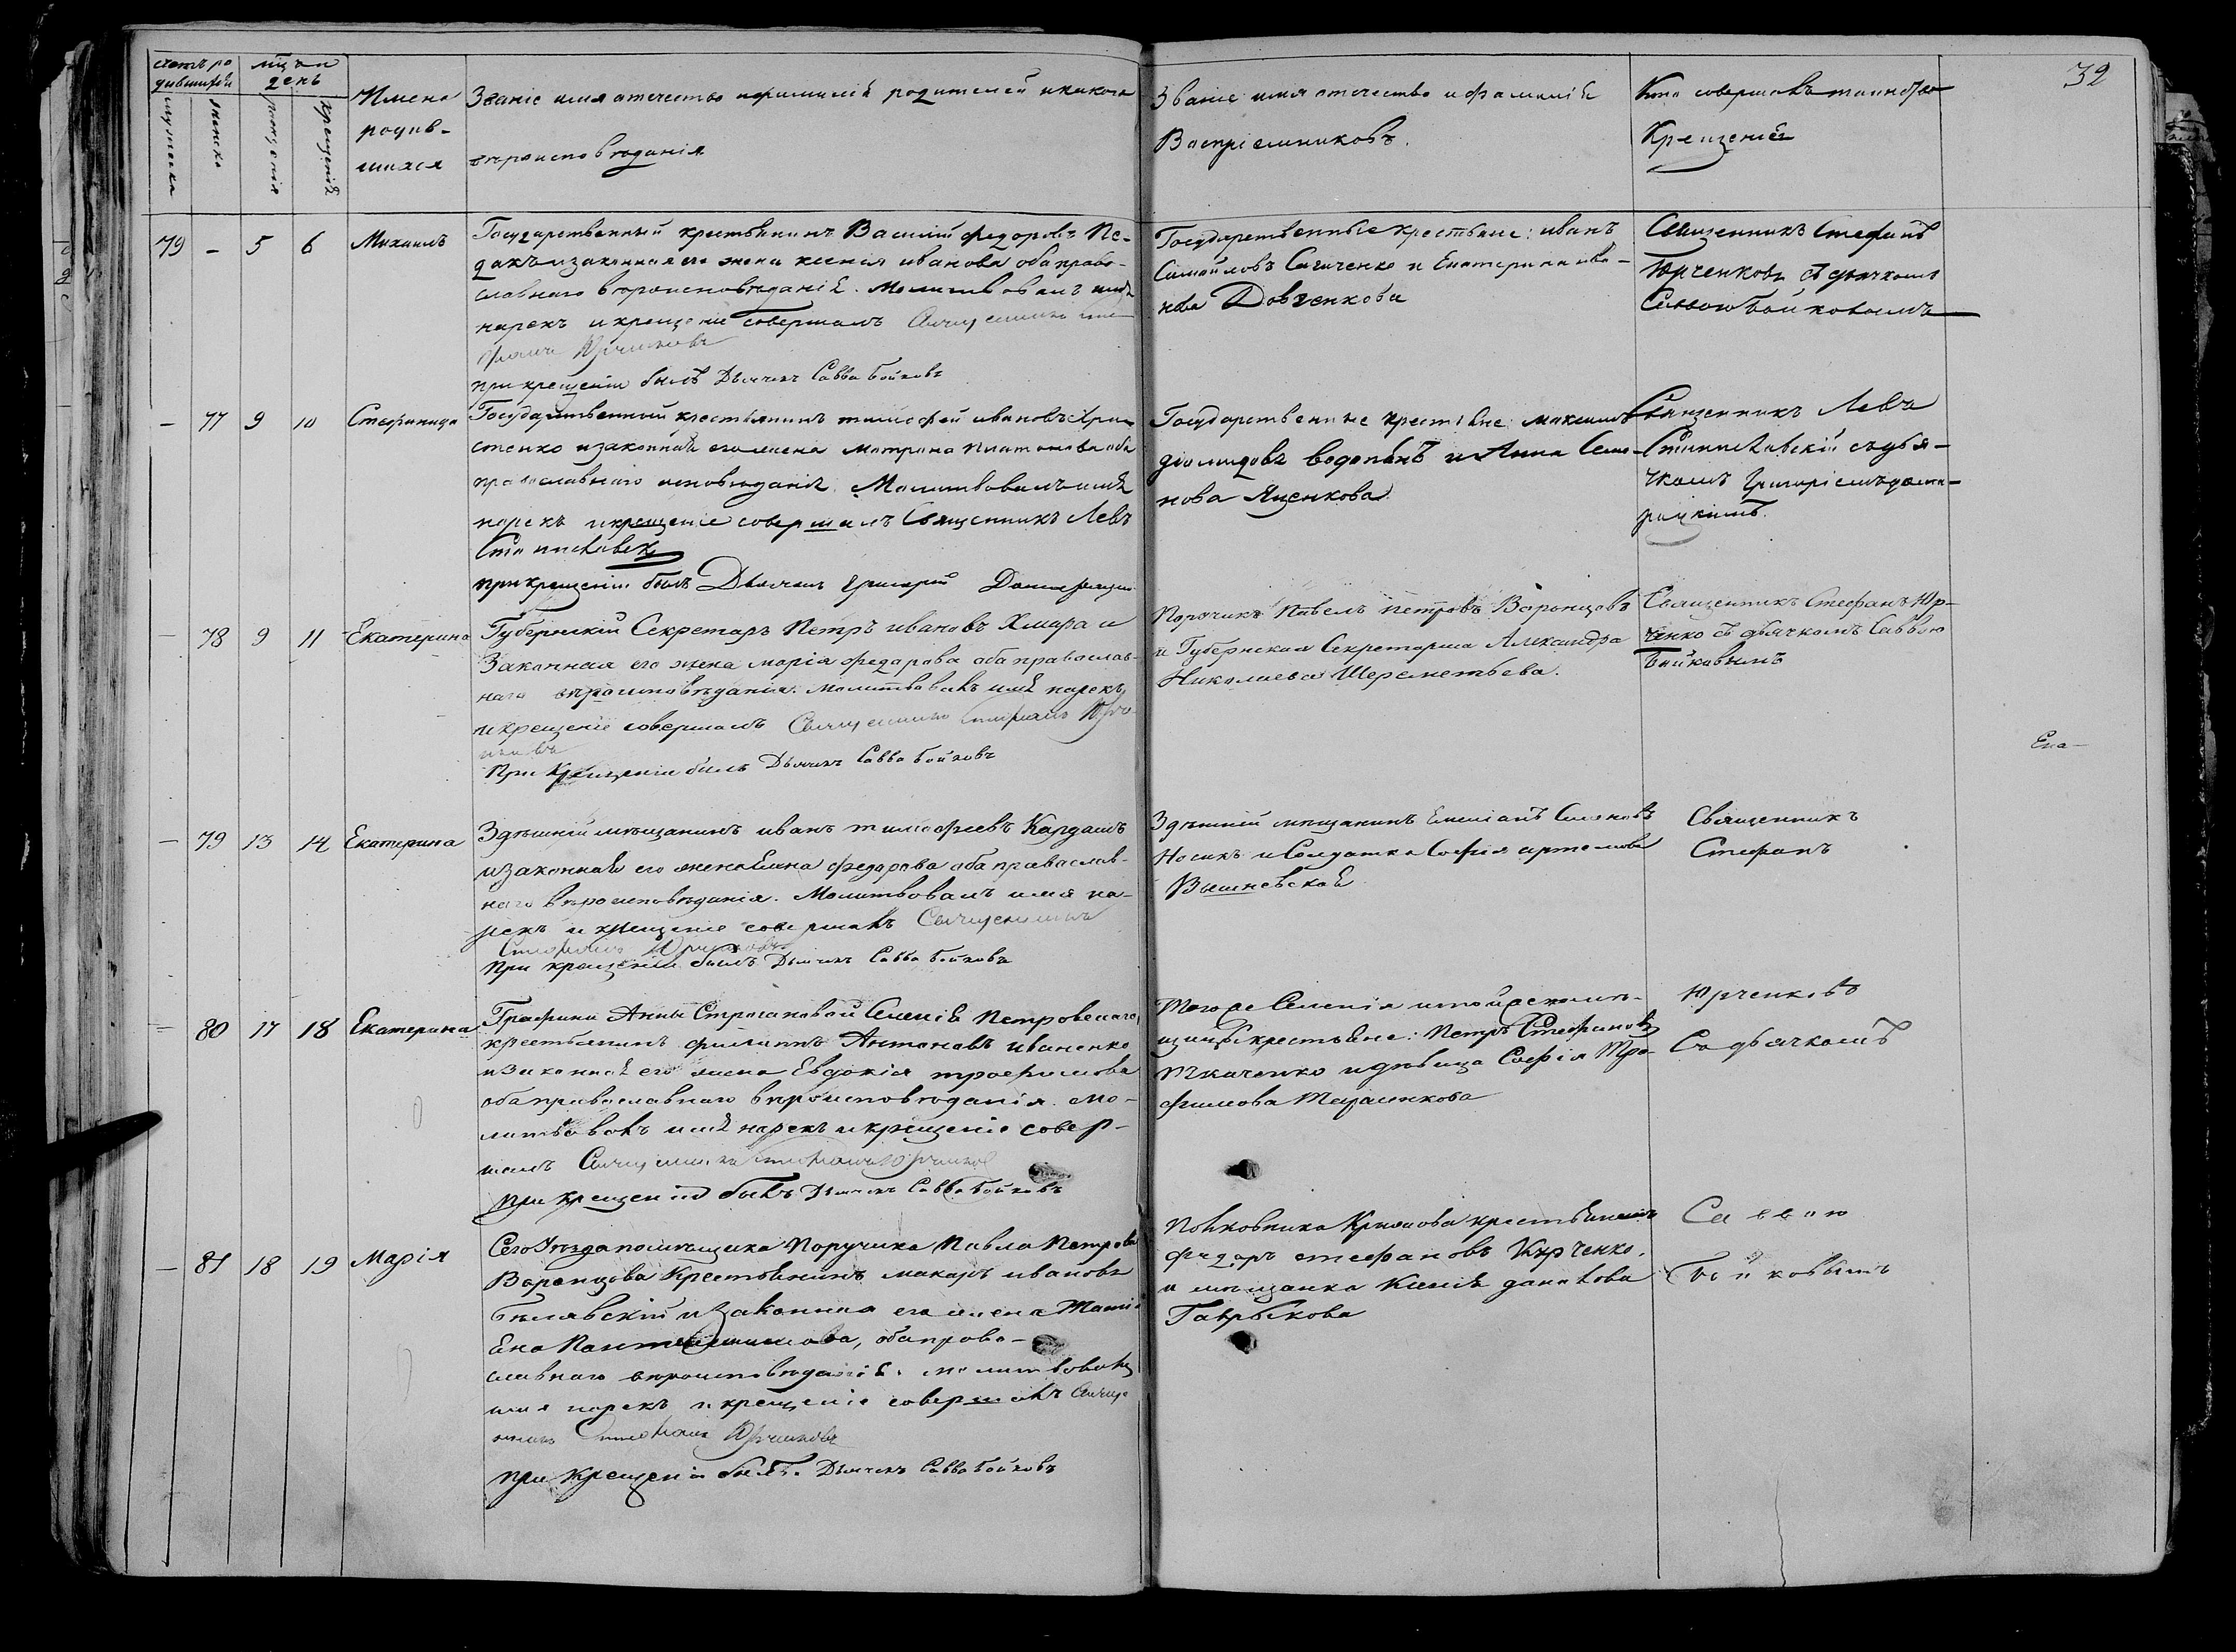 32
Счетъ ро
дившихся
мужеска
женска
мѣс. и
день
рожденія
крещенія
Имена
родив-
шихся
Званіе имя отечество и фамилія родителей и какого
вѣроисповѣданія
Званіе имя отечество и фамилія
Воспріемниковъ.
Кто совершалъ таинство
Крещенія
79 - 5 6 Михаилъ
Государственный крестьянинъ Василій Федоровъ
и законная его жена Ксенія Иванова оба право-
славнаго вѣроисповѣданія. Молитвовалъ имя
нарекъ и крещеніе совершалъ Священникъ Сте
фанъ Юрченковъ
При крещеніи былъ Дьячекъ Савва Бойковъ
Государственные крестьяне: Иванъ
Самойловъ и Екатерина Ива-
нова Довченкова
Священникъ Стефанъ
Юрченковъ съ дьячкомъ
Саввою Бойковымъ
- 77 9 10 Стефанида
Государственный крестьянинъ Тимофей Ивановъ Хри
стенко и законная его жена Матрона Платонова оба
православнаго исповѣданія. Молитвовалъ имя
нарекъ и крещеніе совершалъ Священникъ Левъ
При крещеніи былъ Дьячекъ Григорій
Государственные крестьяне: Максимъ
Діомидовъ Водопьянъ и Анна Семе-
нова Яценкова
Священникъ Левъ
съ дья-
чкомъ Григоріемъ
- 78 9 11 Екатерина
Губернскій Секретарь Петръ Ивановъ Хмара и
Законная его жена Марія Федорова оба православ-
наго вѣроисповѣданія. Молитвовалъ имя нарекъ
и крещеніе совершалъ Священникъ Стефанъ Юрче
нковъ
При Крещеніи былъ Дьячекъ Савва Бойковъ
Поручикъ Павелъ Петровъ Воронцовъ
и Губернская Секретарша Александра
Николаева Шереметьева.
Священникъ Стефанъ Юр-
ченко съ дьячкомъ Саввою
Бойковымъ
Ека-
- 79 13 14 Екатерина
Здѣшній мѣщанинъ Иванъ Тимофеевъ Кардашъ
и законная его жена Елена Федорова оба православ-
наго вѣроисповѣданія. Молитвовалъ имя на-
рекъ и крещеніе совершалъ Священникъ
Стефанъ Юрченковъ
При крещеніи былъ Дьячекъ Савва Бойковъ
Здѣшній мѣщанинъ Емеліанъ Симоновъ
Носикъ и Солдатка Софія Артемова
Вышневская
Священникъ
Стефанъ
- 80 17 18 Екатерина
Графини Анны Строгановой Селенія Петровскаго
крестьянинъ Филиппъ Антоновъ Иваненко
и законная его жена Евдокія Трофимова
оба православнаго вѣроисповѣданія. Мо-
литвовалъ имя нарекъ и крещеніе совер-
шалъ Священникъ Стефанъ Юрченковъ
При крещеніи былъ Дьячекъ Савва Бойковъ
Того же Селенія и той же помѣ-
щицы крестьяне: Петръ Стефановъ
Ткаченко и дѣвица Софія Тро-
фимова Тарасенкова
Юрченковъ
Съ дьячкомъ
- 81 18 19 Марія
Сего Уѣзда помѣщика Поручика Павла Петрова
Воронцова Крестьянинъ Макаръ Ивановъ
Бѣлявскій и Законная его жена Тати
яна Пантелеимонова, оба право-
славнаго вѣроисповѣданія. Молитвовалъ
имя нарекъ и крещеніе совершалъ Свяще
нникъ Стефанъ Юрченковъ
При Крещеніи былъ Дьячекъ Савва Бойковъ
Полковника крестьянинъ
Федоръ Стефановъ Юрченко,
и мѣщанка Ксенія Данилова
Гаврыкова
Саввою
Бойковымъ